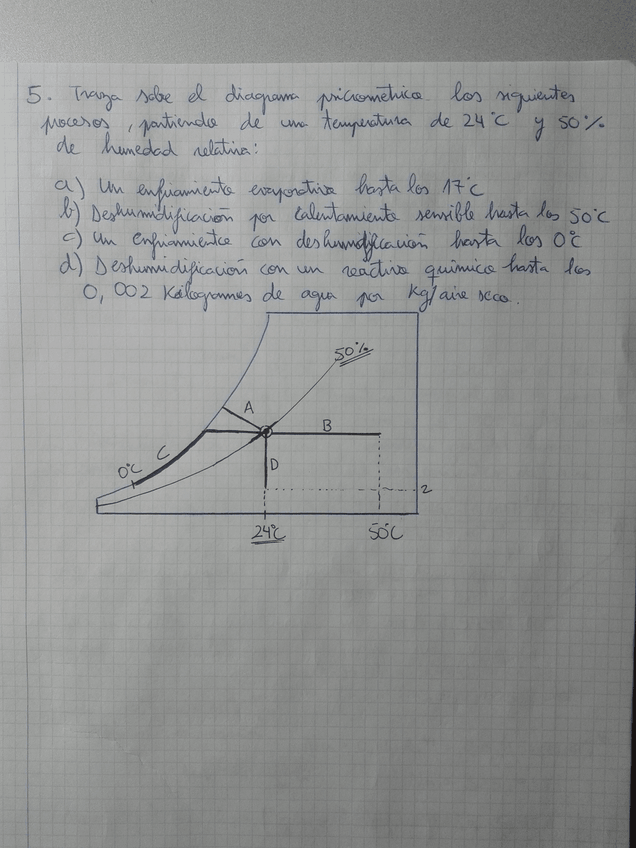 5. Traza sobe el diagrama psicrométrico los siguientes
procesos, partiendo de una temperatura de 24°C y 50%
de humedad relativa:
a) Un enfriamiento evaporativo hasta los 17°C
b) Deshumidificación por calentamiento sensible hasta los 50°C
c) Un enfriamiento con deshumidificación hasta los 0°C
d) Deshumidificación con un reactivo químico hasta los
0,002 Kilogramos de agua por Kg/aire seco.
50%
A
B
C
0°C
D
2
24°C
50°C